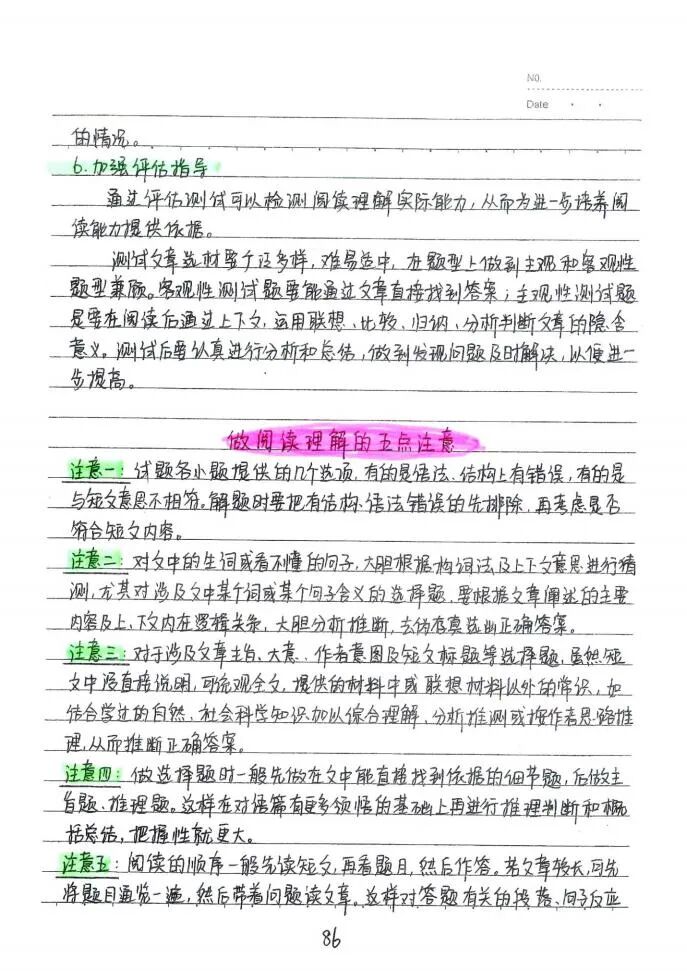 No.
Date
的情况。
6.加强评估指导
通过评估测试可以检测阅读理解实际能力,从而为进一步培养阅
读能力提供依据。
测试文章选材要广泛多样,难易适中,在题型上做到主观和客观性
题型兼顾。客观性测试题要能通过文章直接找到答案;主观性测试题
是要在阅读后通过上下文,运用联想、比较、归纳、分析判断文章的隐含
意义。测试后要认真进行分析和总结,做到发现问题及时解决,以便进一
步提高。
做阅读理解的五点注意
注意一:试题各小题提供的几个选项,有的是语法、结构上有错误,有的是
与短文意思不相符。解题时要把有结构、语法错误的先排除,再考虑是否
符合短文内容。
注意二:对文中的生词或看不懂的句子,大胆根据构词法及上下文意思进行猜
测,尤其对涉及文中某个词或某个句子含义的选择题,要根据文章阐述的主要
内容及上、下文内在逻辑关条,大胆分析推断,去伪存真选出正确答案。
注意三:对于涉及文章主旨、大意、作者意图及短文标题等选择题,虽然短
文中没直接说明,可统观全文,提供的材料中或联想材料以外的常识,如
结合学过的自然、社会科学知识加以综合理解、分析推测或按作者思路推
理,从而推断正确答案。
注意四:做选择题时一般先做在文中能直接找到依据的细节题,后做主
旨题、推理题。这样在对语篇有更多领悟的基础上再进行推理判断和概
括总结,把握性就更大。
注意五:阅读的顺序一般先读短文,再看题目,然后作答。若文章较长,可先
将题目通览一遍,然后带着问题读文章。这样对答题有关的段落、句子反应
86